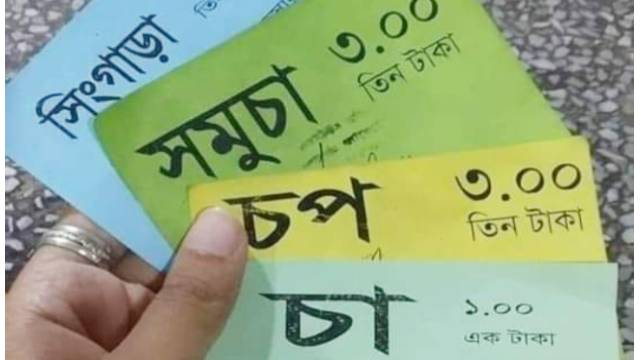 সিংগাড়া
সমুচা
৩.০০
তিন টাকা
চপ
৩.০০
তিন টাকা
চা
১.০০
এক টাকা